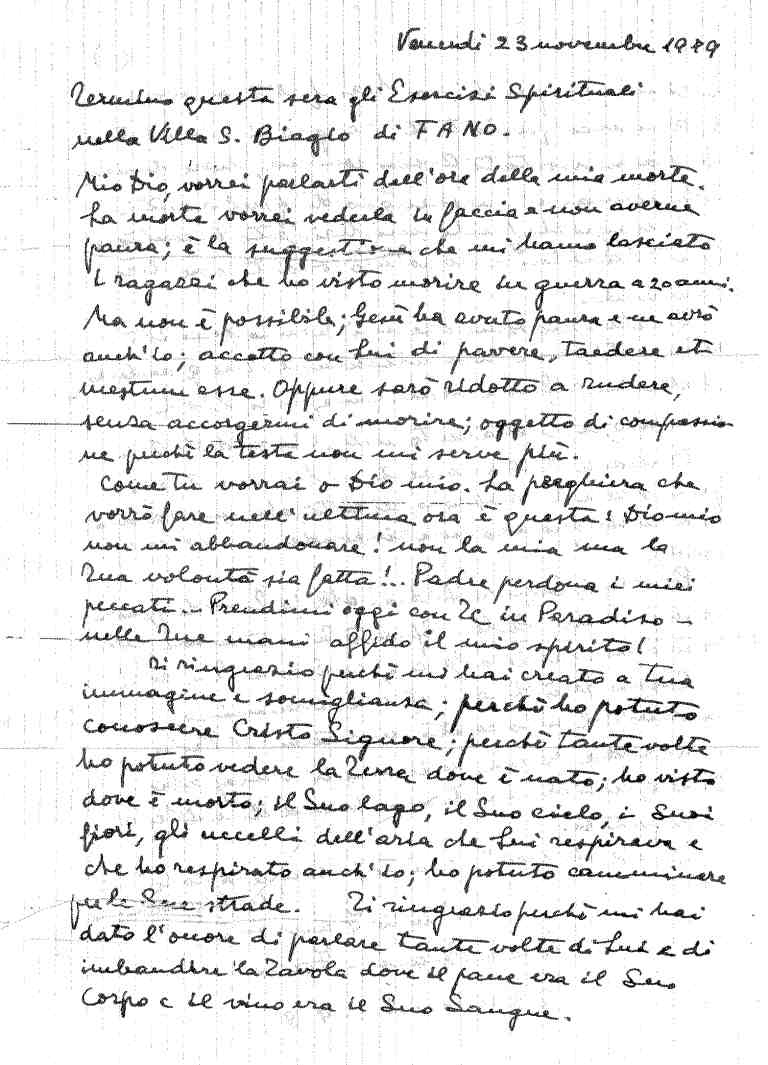 Venerdi 23 novembre 1979
Termino questa sera gli Esercizi Spirituali
nella Villa S. Biagio di FANO.
Mio Dio, vorrei parlarti dell'ora della mia morte.
La morte vorrei vederla in faccia e non averne
paura; è la suggestione che mi hanno lasciato
i ragazzi che ho visto morire in guerra a 20 anni.
Ma non è possibile; Gesù ha avuto paura e ne avrò
anch'io; accetto con Lui di pavere, taedere et
mestum esse. Oppure sarò ridotto a rudere,
senza accorgermi di morire; oggetto di compassio
ne perchè la testa non mi serve più.
Come tu vorrai o Dio mio. La preghiera che
vorrò fare nell'ultima ora è questa: Dio mio
non mi abbandonare! non la mia ma la
Tua volontà sia fatta!.. Padre perdona i miei
peccati.. Prendimi oggi con Te in Paradiso -
nelle Tue mani affido il mio spirito!
Ti ringrazio perchè mi hai creato a tua
immagine e somiglianza; perchè ho potuto
conoscere Cristo Signore; perchè tante volte
ho potuto vedere la Terra dove è nato; ho visto
dove è morto; il Suo lago, il Suo cielo, i Suoi
fiori, gli uccelli dell'aria che Lui respirava e
che ho respirato anch'io; ho potuto camminare
per le Sue strade. Ti ringrazio perchè mi hai
dato l'onore di parlare tante volte di Lui e di
imbandire la Tavola dove il pane era il Suo
Corpo e il vino era il Suo Sangue.